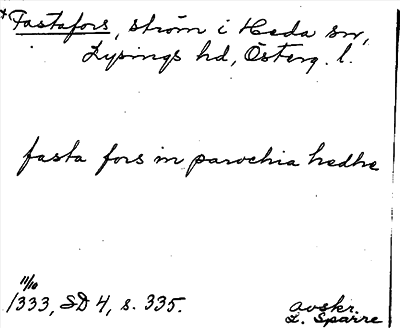 *Fastafors, ström i Heda sn,
Lysings hd, Österg. l.
fasta fors in parochia hedhe
11/10
1333, SD 4, s. 335.
avskr.
L. Sparre